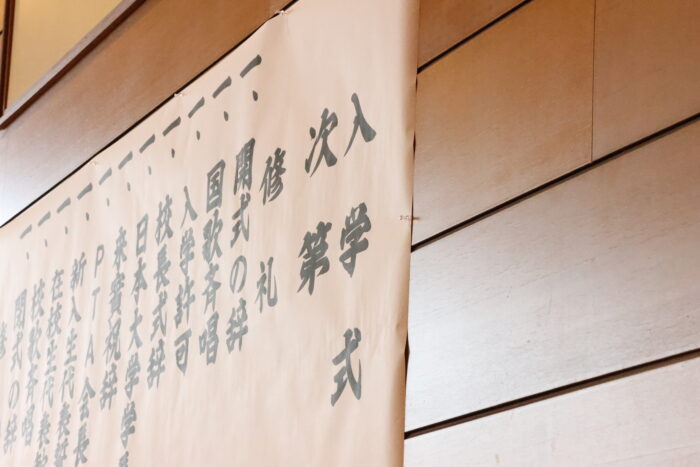 入学式
次第
修礼
一、開式の辞
一、国歌斉唱
一、入学許可
一、校長式辞
一、日本大学学
一、来賓祝辞
一、PTA会長
一、新入生代表
一、在校生代表
一、校歌斉唱
一、閉式の辞